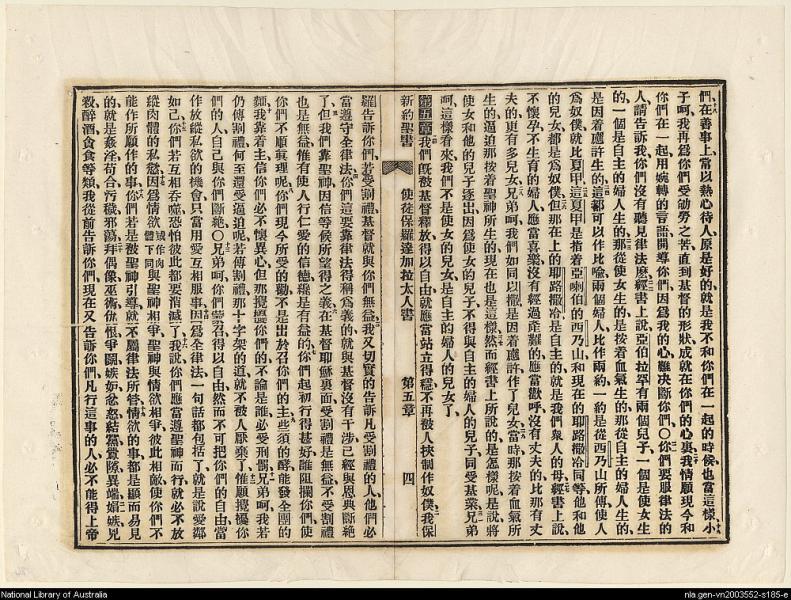 們在善事上常以熱心待人原是好的就是我不和你們在一起的時候也當這樣小
子呵我再爲你們受劬勞之苦直到基督的形狀成就在你們的心裏我情願現今和
你們在一起用婉轉的言語開導你們因爲我的心難決斷你們〇你們要服律法的
人請告訴我你們沒有聽見律法麽經書上說亞伯拉罕有兩個兒子一個是使女生
的一個是自主的婦人生的那從使女生的是按着血氣生的那從自主的婦人生的
是因着應許生的這都可以作比喻兩個婦人比作兩約一約是從西乃山所傳使人
爲奴僕就比夏甲這夏甲是指着亞喇伯的西乃山和現在的耶路撒冷同等他和他
的兒女都是爲奴僕但那在上的耶路撒冷是自主的就是我們衆人的母經書上說
不懷孕不生育的婦人應當喜樂沒有經過產難的應當歡呼沒有丈夫的比那有丈
夫的更有多兒女兄弟呵我們如同以撒是因着應許作了兒女當時那按着血氣所
生的逼迫那按着聖神所生的現在也是這樣然而經書上所說的是怎樣呢是說將
使女和他的兒子逐出因爲使女的兒子不得與自主的婦人的兒子同受基業兄弟
呵這樣看來我們不是使女的兒女是自主的婦人的兒女了
第五章我們旣被基督釋放得以自由就應當站立得穩不再被人挾制作奴僕我保
新約聖書 使徒保羅達加拉太人書 第五章 四
羅告訴你們若受割禮基督就與你們無益我又切實的告訴凡受割禮的人他們必
當遵守全律法你們這要靠律法得稱爲義的就與基督沒有干涉已經與恩典斷絶
了但我們靠聖神因信等候所望得之義在基督耶穌裏面受割禮是無益不受割禮
也是無益惟有使人行仁愛的信德纔是有益的你們起初行得甚好誰阻攔你們使
你們不順眞理呢你們現今所受的勸不是出於召你們的主些須的酵能發全團的
麵我靠着主信你們必不懷異心但那攪擾你們的不論是誰必受刑罰兄弟呵我若
仍傳割禮何至還受逼迫呢若傳割禮那十字架的道就不被人厭棄了惟願攪擾你
們的人自己與你們斷絶〇兄弟呵你們蒙召得以自由然而不可把你們的自由當
作放縱私欲的機會只當用愛互相服事因爲全律法一句話都包括了就是說愛鄰
如己你們若互相吞噬恐怕彼此都要消滅了我說你們應當遵聖神而行就必不放
縱肉體的私慾因爲情欲或作肉體下同與聖神相爭聖神與情欲相爭彼此相敵使你們不
能作所願作的事你們若是被聖神引導就不屬律法所管情欲的事都是顯而易見
的就是姦淫苟合污穢邪蕩拜偶像巫術仇恨爭鬬嫉妒忿怒結黨釁隙異端媢嫉兇
殺醉酒貪食等類我從前告訴你們現在又告訴你們凡行這事的人必不能得上帝
National Library of Australia
nla.gen-vn2003552-s185-e